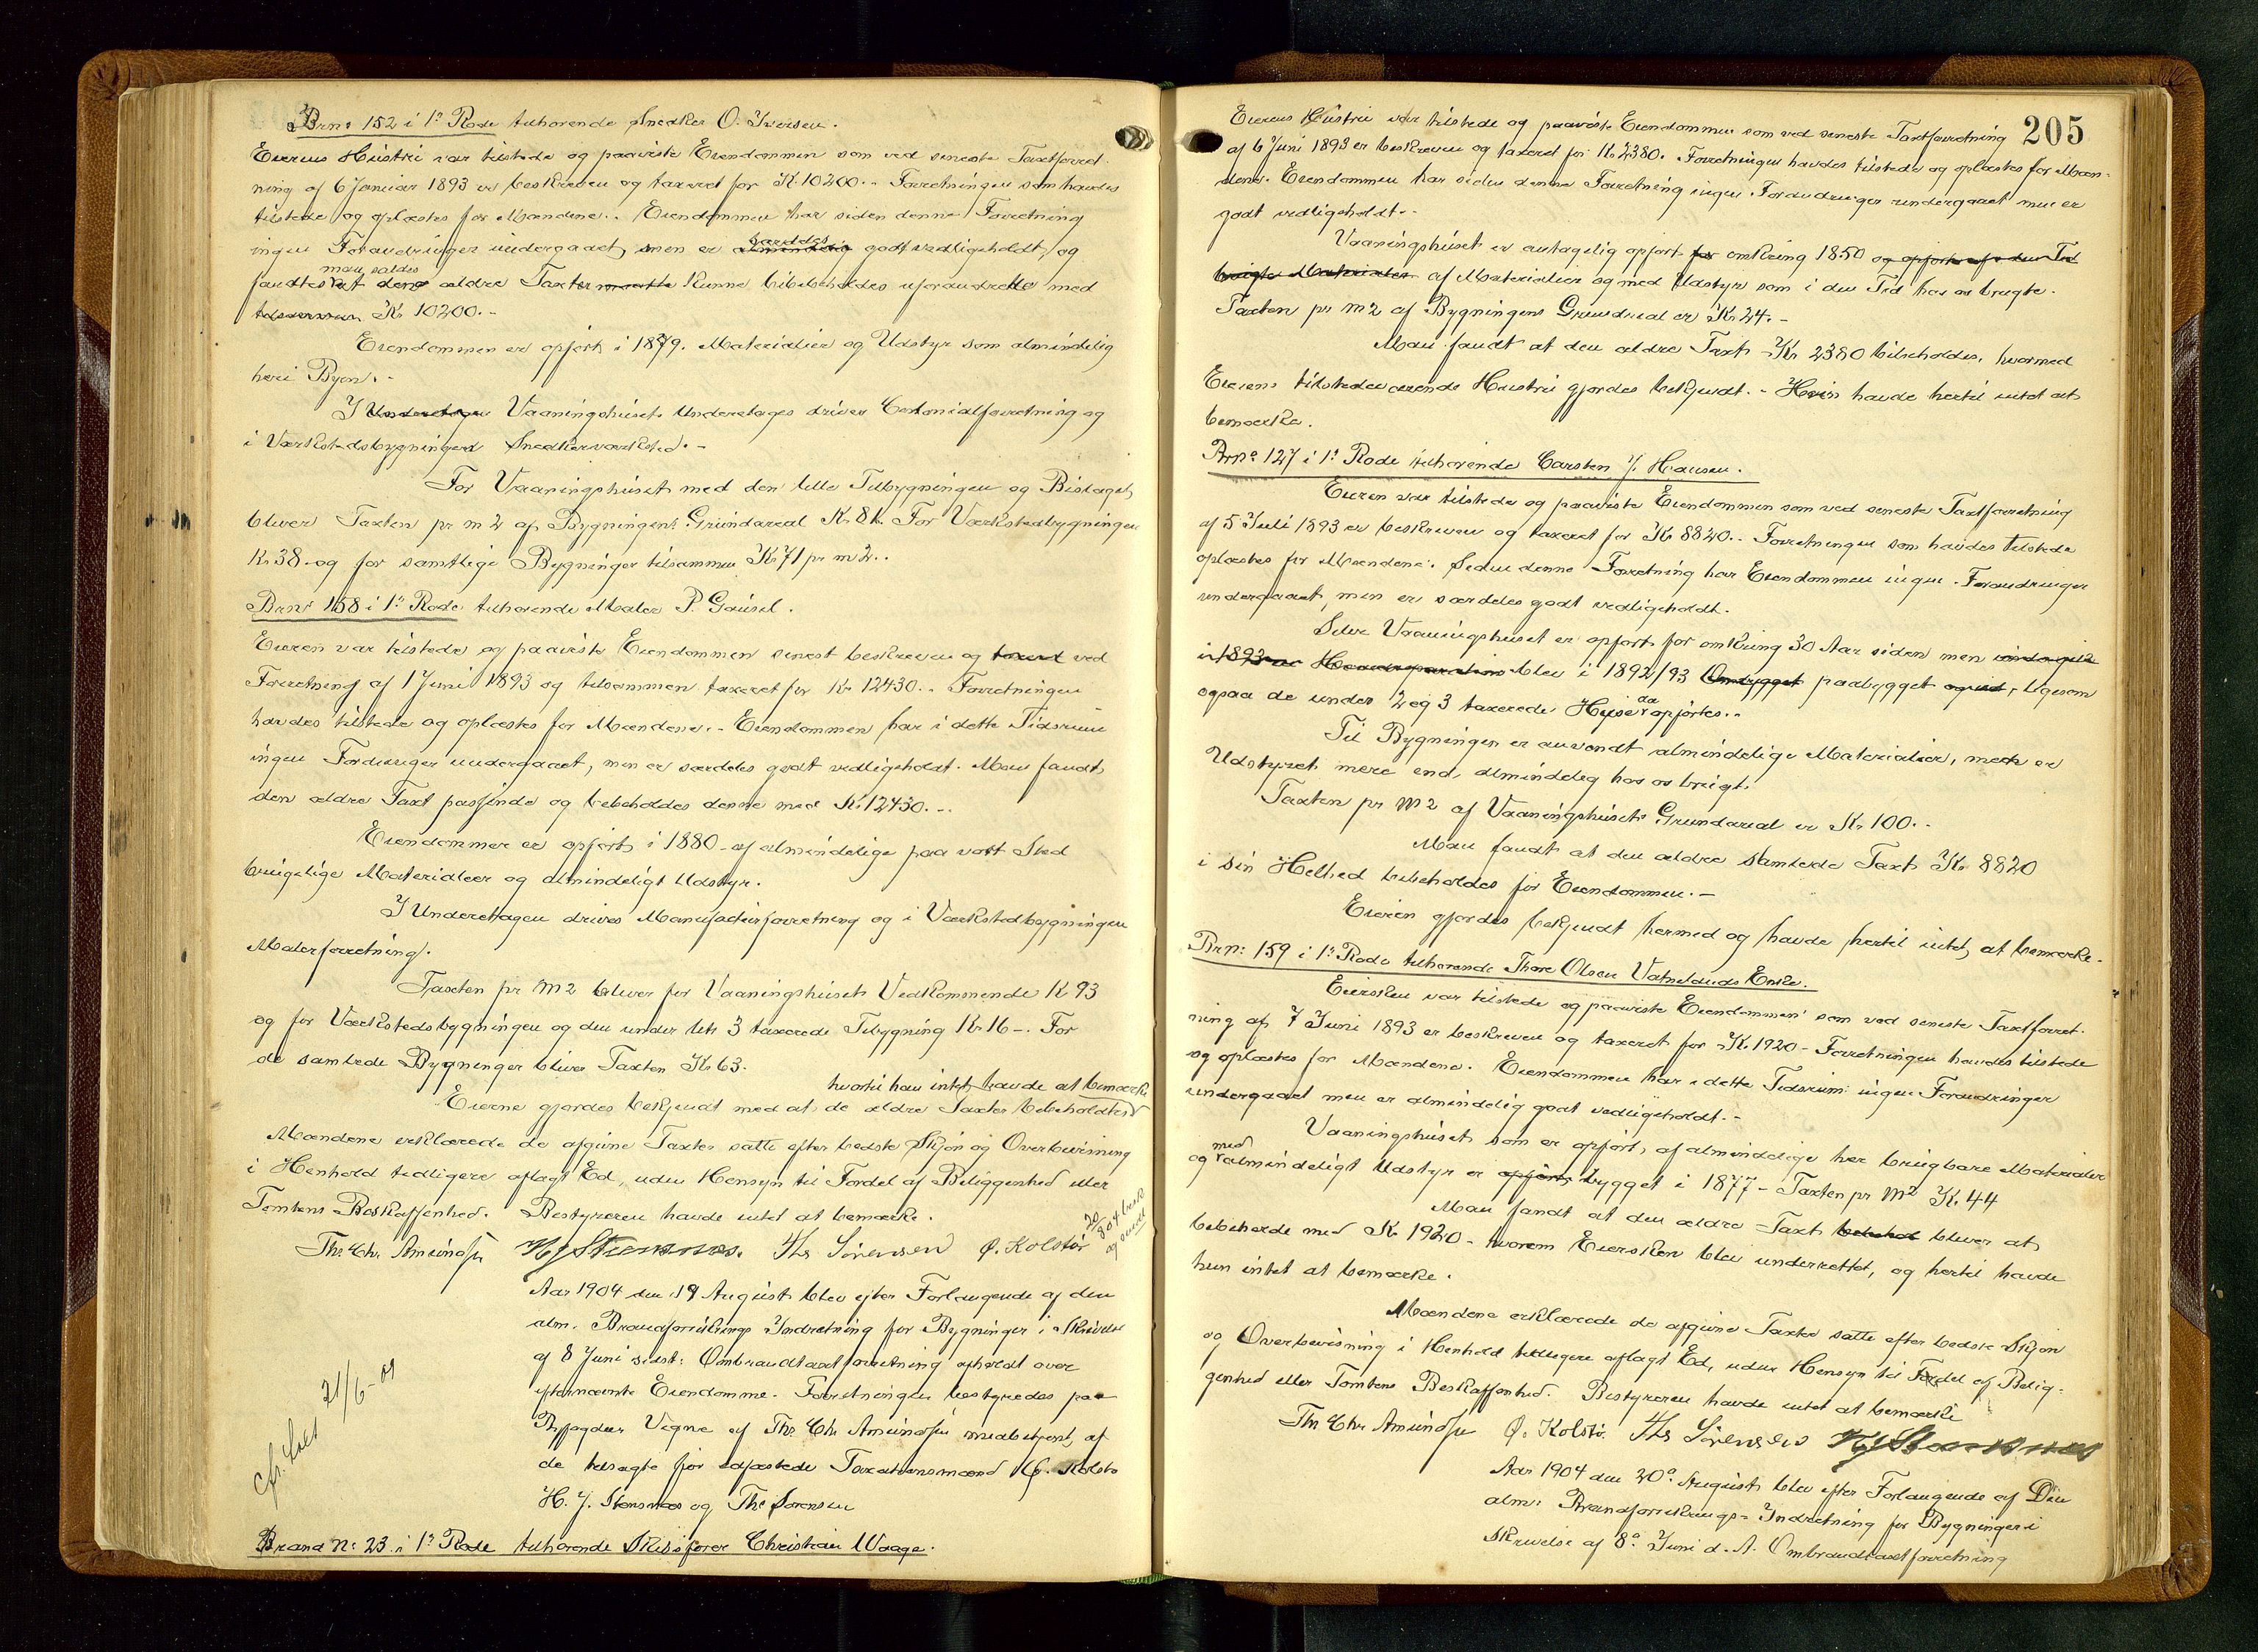 Brn: 152 i 1ste Rode tilhørende Snedker O. Iversen.
Eierens Hustru var tilstede og paaviste Eiendommen som ved seneste Taxtforret-
ning af 6 Januar 1893 er beskreven og taxeret for Kr 10200.- Forretningen som havdes
tilstede og oplæstes for Mændene.. Eiendommen har siden denne Forretning
ingen Forandringer undergaaet, men er særdeles godt vedligeholdt, og
fandtes at den ældre Taxter kunne bibeholdes uforandrette med
Kr 10200.-
Eiendommen er opført i 1879. Materialier og Udstyr som almindelig
her i Byen.-
I Vaaningshusets Underetage drives Colonialforretning og
i Værkstedsbygningen Snedkerværksted.-
For Vaaningshuset med den lille Tilbygningen og Bislaget,
bliver Taxten pr m2 af Bygningens Grundareal Kr 81. For Værkstedbygningen
Kr 38.- og for samtlige Bygninger tilsammen Kr 71 pr m2..
Brn: 158 i 1ste Rode tilhørende Maler P. Gausel.
Eieren var tilstede og paaviste Eiendommen senest beskreven og taxeret ved
Forretning af 1 Juni 1893 og tilsammen taxeret for Kr 12430.. Forretningen
havdes tilstede og oplæstes for Mændene.- Eiendommen har i dette Tidsrum
ingen Fordringer undergaaet, men er særdeles godt vedligeholdt. Man fandt
den ældre Taxt passende og bibeholdes denne med Kr. 12430.-.
Eiendommen er opført i 1880 af almindelige paa vort Sted
brugelige Materialier og almindeligt Udstyr.
I Underetagen drives Manufacturforretning og i Værkstedbygningen
Malerforretning.
Taxten pr M2 bliver for Vaaningshusets Vedkommende K 93
og for Værkstedsbygningen og den under litr 3 taxerede Tilbygning Kr. 16-. For
de samlede Bygninger bliver Taxten Kr 63.
hvortil han intet havde at bemærke
Eierne gjordes bekjendt med at de ældre Taxter bibeholdtes
Mændene erklærede de afgivne Taxter satte efter bedste Skjøn og Overbevisning
i Henhold tidligere aflagt Ed, uden Hensyn til Fordel af Beliggenhed eller
Tomtens Beskaffenhed. Bestyreren havde intet at bemærke.
Th. Chr. Amundsen HJStensnæs. Ths Sørensen O. Kolstø
Aar 1904 den 19 August blev efter Forlangende af den
alm. Brandforsikrings Indretning for Bygninger i Skrivelse
af 8 Juni sidst: Ombrandtaxtforretning afholdt over
efternævnte Eiendomme. Forretningen bestyredes paa
Byfogdens Vegne af Th. Chr Amundsen medbetjent af
de tilsagte før edfæstede Taxationsmænd O. Kolstø
H. J. Stensnæs og Ths Sørensen
21/6-09
Brand N: 23 i 1ste Rode tilhørende Skibsfører Christian Waage.
205
Eierens Hustru var tilstede og paaviste Eiendommen som ved seneste Taxtforretning
af 6 Juni 1893 er beskreven og taxeret for Kr 2380. Forretningen havdes tilstede og oplæstes for Mæn-
dene. Eiendommen har siden denne Forretning ingen Forandringer undergaaet men er
godt vedligeholdt.-
Vaaningshuset er antagelig opført for omkring 1850 og opført af i den Tid
brugte Materialier af Materialier og med Udstyr som i den Tid hos os brugte.
Taxten pr m2 af Bygningens Grundareal er Kr. 24.-
Man fandt at den ældre Taxt Kr 2380 bibeholdes, hvormed
Eierens tilstedeværende Hustru gjordes bekjendt.- Hun havde hertil intet at
bemærke.
Brn: 127 i 1ste Rode tilhørende Carsten J. Hansen.
Eieren var tilstede og paaviste Eiendommen som ved seneste Taxtforretning
af 5 Juli 1893 er beskreven og taxeret for Kr 8820.. Forretningen som havdes tilstede
oplæstes for Mændene. Siden denne Forretning har Eiendommen ingen Forandringer
undergaaet, men er særdeles godt vedligeholdt.
Selve Vaaningshuset er opført for omkring 30 Aar siden men
blev i 1892/93 Ombygget paabygget, ligesom
ogsaa de under 2 og 3 taxerede Huse da opførtes..
Til Bygningen er anvendt almindelige Materialier, men er
Udstyret mere end almindelig hos os brugt.
Taxten pr M2 af Vaaningshusets Grundareal er Kr. 100.-
Man fandt at den ældre samlede Taxt Kr 8820
i sin Helhed bibeholdes for Eiendommen.-
Eieren gjordes bekjendt hermed og havde hertil intet at bemærke.
Brn: 159 i 1ste Rode tilhørende Thore Olsen Vatnelands Enke.
Eiersken var tilstede og paaviste Eiendommen som ved seneste Taxtforret-
ning af 7 Juni 1893 er beskreven og taxeret for Kr. 1920- Forretningen havdes tilstede
og oplæstes for Mændene. Eiendommen har i dette Tidsrum ingen Forandringer
undergaaet men er almindelig godt vedligeholdt.-
Vaaningshuset som er opført, af almindelige her brugbare Materialier
og med almindeligt Udstyr er opført bygget i 1877- Taxten pr M2 K. 44
Man fandt at den ældre Taxt bibehol bliver at
bibeholde med Kr 1920- hvorom Eiersken blev underrettet, og hertil havde
hun intet at bemærke.
Mændene erklærede de afgivne Taxter satte efter bedste Skjøn
og Overbevisning i Henhold tidligere aflagt Ed, uden Hensyn til Fordel af Belig-
genhed eller Tomtens Beskaffenhed. Bestyreren havde intet at bemærke
Th Chr Amundsen O. Kolstø. Ths Sørensen HJStensnæs
Aar 1904 den 20de August blev efter Forlangende af Den
alm: Brandforsikrings-Indretning for Bygninger i
Skrivelse af 8de Juni d. A. Ombrandtaxtforretning